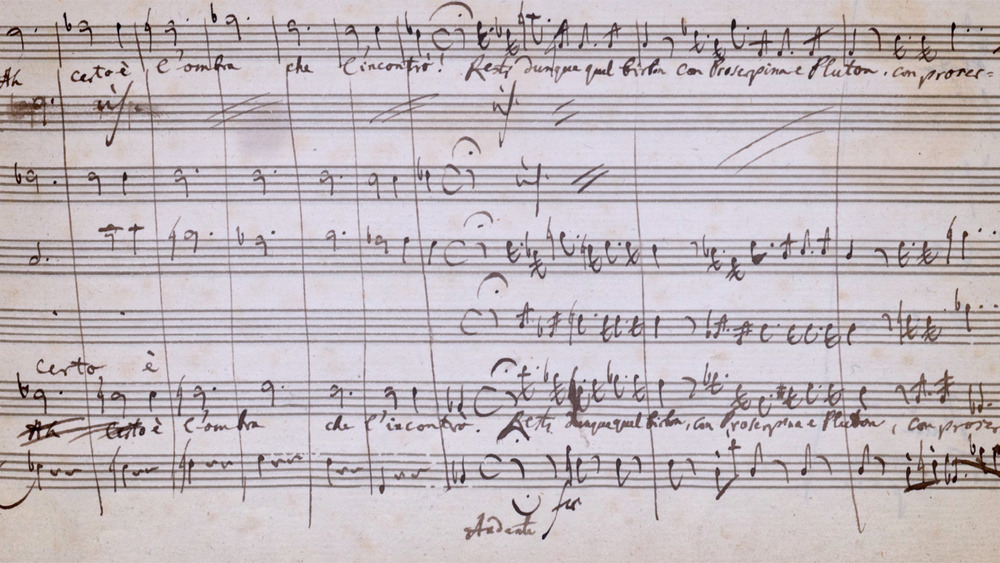 Ah certo è l'ombra che l'incontrò! Resti dunque quel birbon con Proserpina e Pluton, con proser=
certo è
Ah certo è l'ombra che l'incontrò. Resti dunque quel birbon, con Proserpina e Pluton, con proser
for
Andante